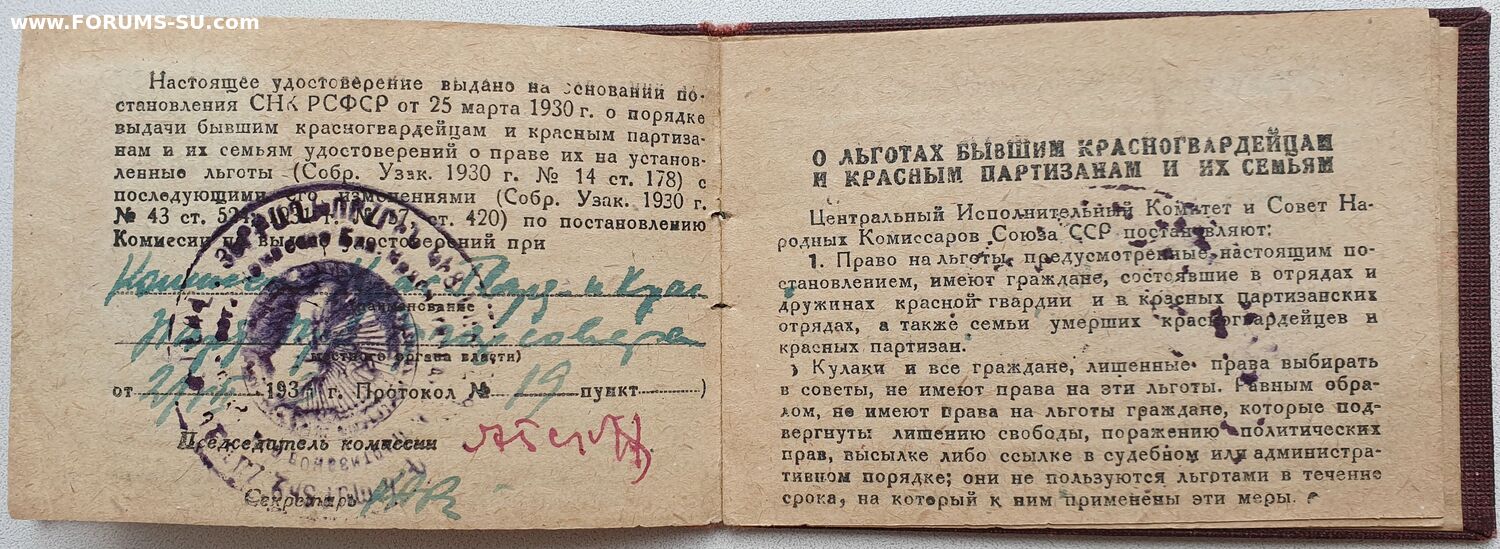 www.FORUMS-SU.com
Настоящее удостоверение выдано на основании по-
становления СНК РСФСР от 25 марта 1930 г. о порядке
выдачи бывшим красногвардейцам и красным партиза-
нам и их семьям удостоверений о праве их на установ-
ленные льготы (Собр. Узак. 1930 г. № 14 ст. 178) с
последующими его изменениями (Собр. Узак. 1930 г.
№ 43 ст. 524, 1931 г. № 57, ст. 420) по постановлению
Комиссии по выдаче удостоверений при
наименование
местного органа власти)
от 193 г. Протокол № 19 пункт )
Председатель комиссии
Секретарь
О ЛЬГОТАХ БЫВШИМ КРАСНОГВАРДЕЙЦАМ
И КРАСНЫМ ПАРТИЗАНАМ И ИХ СЕМЬЯМ
Центральный Исполнительный Комитет и Совет На-
родных Комиссаров Союза ССР постановляют:
1. Право на льготы, предусмотренные настоящим по-
становлением, имеют граждане, состоявшие в отрядах и
дружинах красной гвардии и в красных партизанских
отрядах, а также семьи умерших красногвардейцев и
красных партизан.
Кулаки и все граждане, лишенные права выбирать
в советы, не имеют права на эти льготы. Равным обра-
зом, не имеют права на льготы граждане, которые под-
вергнуты лишению свободы, поражению политических
прав, высылке либо ссылке в судебном или администра-
тивном порядке; они не пользуются льготами в течение
срока, на который к ним применены эти меры.